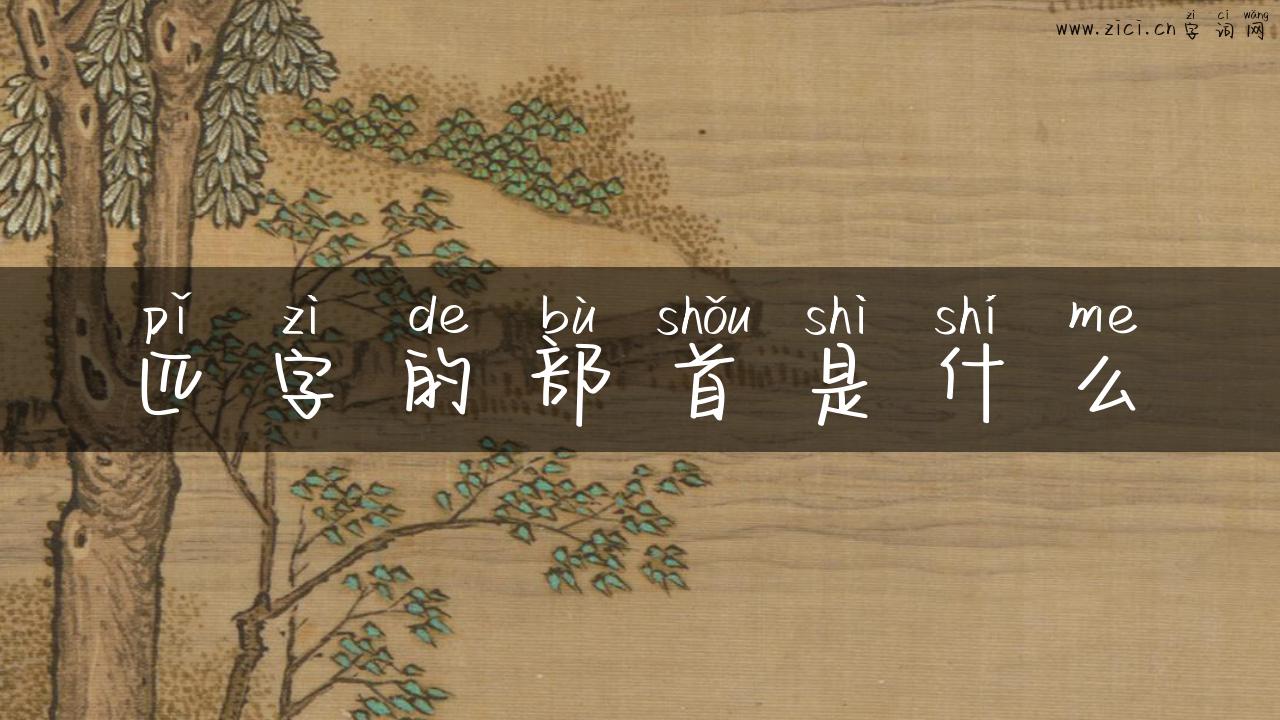 zì cí wǎng
www.zici.cn字词网
pǐ zì de bù shǒu shì shí me
匹字的部首是什么